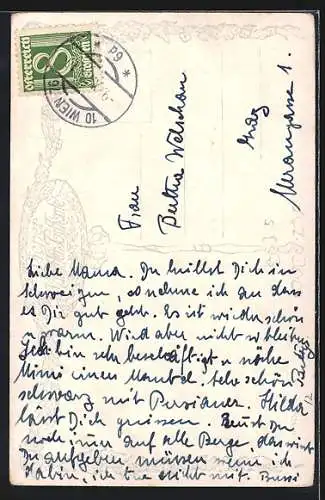 Österreich
8
Groschen
10 WIEN 76
Frau
Bertha Welschan
Graz
Merangasse 1.
Liebe Mama. Du hüllst Dich in
Schweigen, so nehme ich an dass
es Dir gut geht. Es ist wieder schön
u. warm. Wird aber nicht so bleiben
Ich bin sehr beschäftigt u. nähe
Mimi einen Mantel. Sehr schön
schwarz mit Persianer. Hilda
lässt Dich grüssen. Rennst Du
noch immer auf alle Berge, das wirst
Du aufgeben müssen wenn ich
dabin, ich tue nicht mit. Bussi